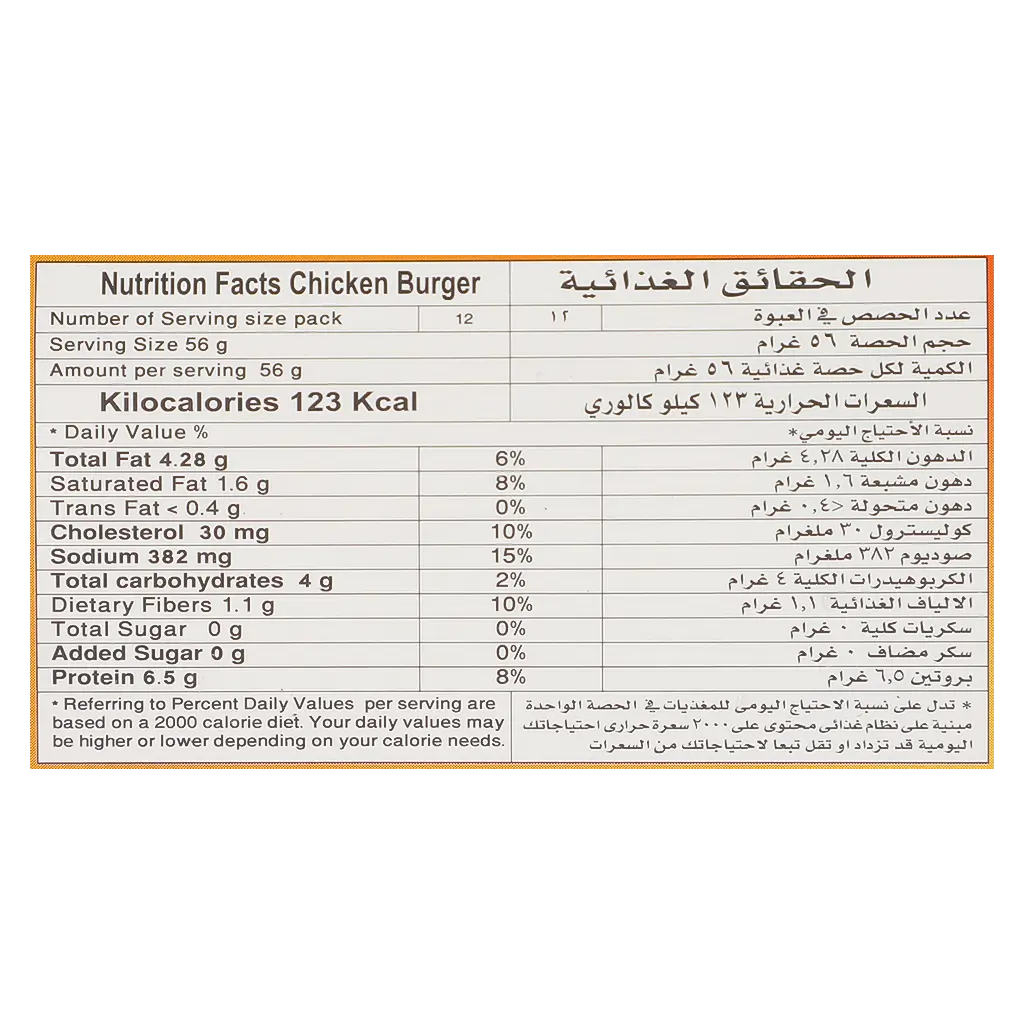 Nutrition Facts Chicken Burger الحقائق الغذائية
Number of Serving size pack 12 ١٢ عدد الحصص في العبوة
Serving Size 56 g حجم الحصة ٥٦ غرام
Amount per serving 56 g الكمية لكل حصة غذائية ٥٦ غرام
Kilocalories 123 Kcal السعرات الحرارية ١٢٣ كيلو كالوري
* Daily Value % نسبة الأحتياج اليومي*
Total Fat 4.28 g 6% الدهون الكلية ٤,٢٨ غرام
Saturated Fat 1.6 g 8% دهون مشبعة ١,٦ غرام
Trans Fat < 0.4 g 0% دهون متحولة <٠,٤ غرام
Cholesterol 30 mg 10% كوليسترول ٣٠ ملغرام
Sodium 382 mg 15% صوديوم ٣٨٢ ملغرام
Total carbohydrates 4 g 2% الكربوهيدرات الكلية ٤ غرام
Dietary Fibers 1.1 g 10% الالياف الغذائية ١,١ غرام
Total Sugar 0 g 0% سكريات كلية ٠ غرام
Added Sugar 0 g 0% سكر مضاف ٠ غرام
Protein 6.5 g 8% بروتين ٦,٥ غرام
* Referring to Percent Daily Values per serving are
based on a 2000 calorie diet. Your daily values may
be higher or lower depending on your calorie needs.
* تدل على نسبة الاحتياج اليومى للمغذيات في الحصة الواحدة
مبنية على نظام غذائى محتوى على ٢٠٠٠ سعرة حرارى احتياجاتك
اليومية قد تزداد او تقل تبعا لاحتياجاتك من السعرات